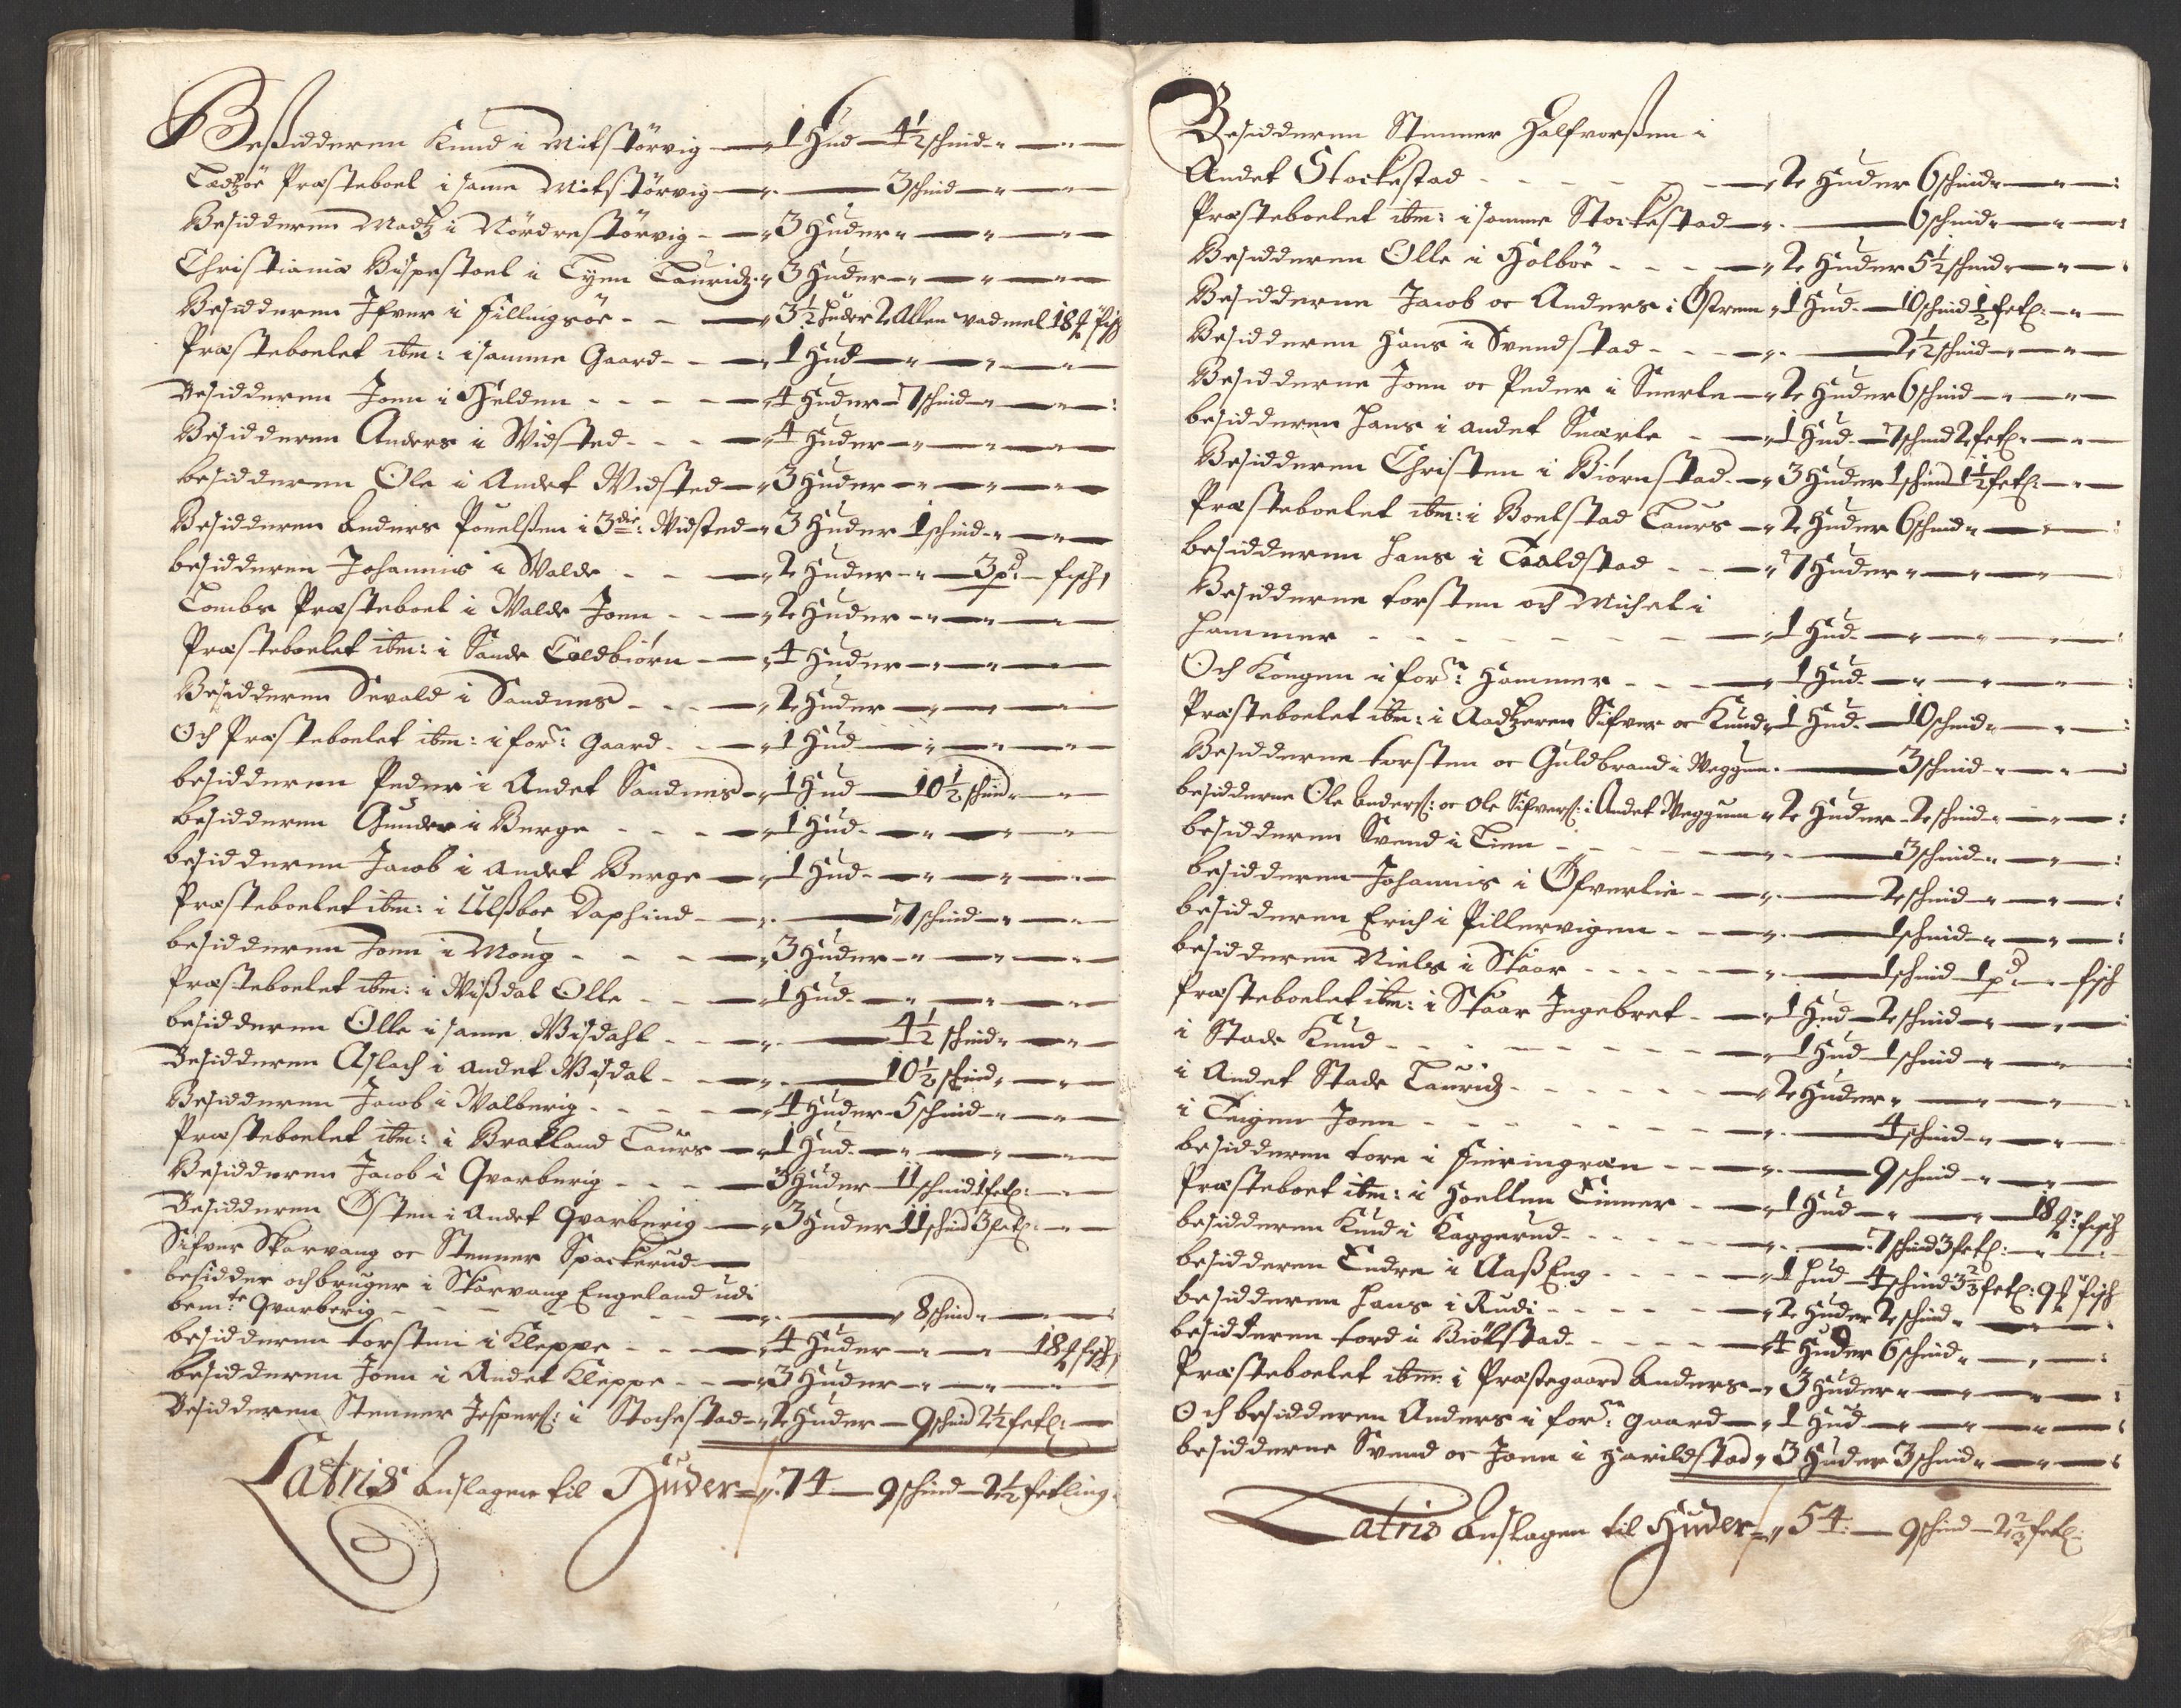 Besidderen Knud i Mitstørvig — 1 Hud — 4½ schind
Præsteboel i same Mitstørvig — 3 schind
Besidderen Madtz i Nørdrestørvig — 3 Huder
Christianiæ Bispestoel i Tyen Lauridz — 3 Huder
Besidderen Ifver i Fillingsøe — 3½ Huder 2 Allen vadmel 18 fisch
Præsteboelet ibm: i samme Gaard — 1 Hud
Besidderen Joen i Helden — 4 Huder — 7 schind
Besidderen Anders i Widsted — 4 Huder
besidderen Ole i Andet Widsted — 3 Huder
Besidderen Anders Pouelssen i 3die: Widsted — 3 Huder 1 schind
besidderen Johannis i Walde — 2 Huder — 3 pd: fisch
Tombs Præsteboel i Walde Joen — 2 Huder
Præsteboelet ibm: i Sande Toldbiørn — 4 Huder
Besidderen Sevald i Sandnes — 2 Huder
Och Præsteboelet ibm: i forn: Gaard — 1 Hud
besidderen Peder i Andet Sandnes — 1 Hud — 10½ schind
besidderen Gunder i Berge — 1 Hud
besidderen Jacob i andet Berge — 1 Hud
Præsteboelet ibm: i Ulssboe Daphind — 7 schind
besidderen Joen i Moug — 3 Huder
Præsteboelet ibm: i Wissdal Olle — 1 Hud
besidderen Olle i same Wisdahl — 4½ schind
Besidderen Aslach i andet Wisdal — 10½ schind
Besidderen Jacob i Walberig — 4 Huder 5 schind
Præsteboelet ibm: i Bratland Laurs — 1 Hud
Besidderen Jacob i Qvarberig — 3 Huder — 11 schind 1 fetl:
Besidderen Østen i Andet Qvarberig — 3 Huder 11 schind 3 fetl:
Sifver Skarvang oc Stenner Spackerud
besidder och bruger i Skarvang Engeland udi
bemte Qvarberig — 8 schind
besidderen torsten i Kleppe — 4 Huder — 18 fisch
besidderen Joen i Andet Kleppe — 3 Huder
Besidderen Stenner Jespers: i Stochestad — 2 Huder — 9 schind 2½ fetl:
Latris Anslagen til Huder — 74 — 9 schind — 2½ fetling
Besidderen Stenner Halfvorssen i
Andet Stockestad — 2 Huder 6 schind
Præsteboelet ibm: i samme Stockestad — 6 schind
Besidderen Olle i Holboe — 2 Huder 5½ schind
Besidderne Jacob oc Anders i Østrem — 1 Hud — 10 schind ½ fetl:
Besidderen Hans i Svendstad — 2½ schind
Besidderne Joen oc Peder i Snerle — 2 Huder 6 schind
besidderen Hans i andet Snærle — 1 Hud — 7 schind 2 fetl:
Besidderen Christen i Biørnstad — 3 Huder 1 schind 1½ fetl:
Præsteboelet ibm: i Boelstad Laurs — 2 Huder 6 schind
besidderen Hans i Toldstad — 7 Huder
Besidderne torsten och Michel i
Hammer — 1 Hud
Och Kongen i forn: Hammer — 1 Hud
Præsteboelet ibm: i Aadtzeren Sifver oc Knud — 1 Hud — 10 schind
Besidderne torsten oc Guldbrand i Weggum — 3 schind
besidderne Ole Anders: oc Ole Sifvers: i Andet Weggum — 2 Huder 2 schind
besidderen Svend i Tiem — 3 schind
besidderen Johannis i Øfverlie — 2 schind
besidderen Erich i Pillervigen — 1 schind
besidderen Niels i Skaar — 1 schind 1 pd: fisch
Præsteboelet ibm: i Skaar Ingebret — 1 Hud 2 schind
i Stade Knud — 1 Hud 1 schind
i Andet Stade Lauridz — 2 Huder
i Teigen Joen — 4 schind
besidderen tore i — 9 schind
Præsteboet ibm: i Hoellen Einner — 1 Hud — 18 fisch
besidderen Knud i Kaggerud — 7 schind 3 fetl:
besidderen Endre i Aass Eng — 1 Hud — 4 schind 3⅔ fetl: 9 fisch
besidderen Hans i Rudi — 2 Huder 2 schind
besidderen tord i Biølstad — 4 Huder 6 schind
Præsteboelet ibm: i Præstegaard Anders — 3 Huder
Och besidderen Anders i forn: gaard — 1 Hud
besidderne Svend oc Joen i Harildstad — 3 Huder 3 schind
Latris Anslagen til Huder — 54 — 9 schind — 2⅔ fetl: